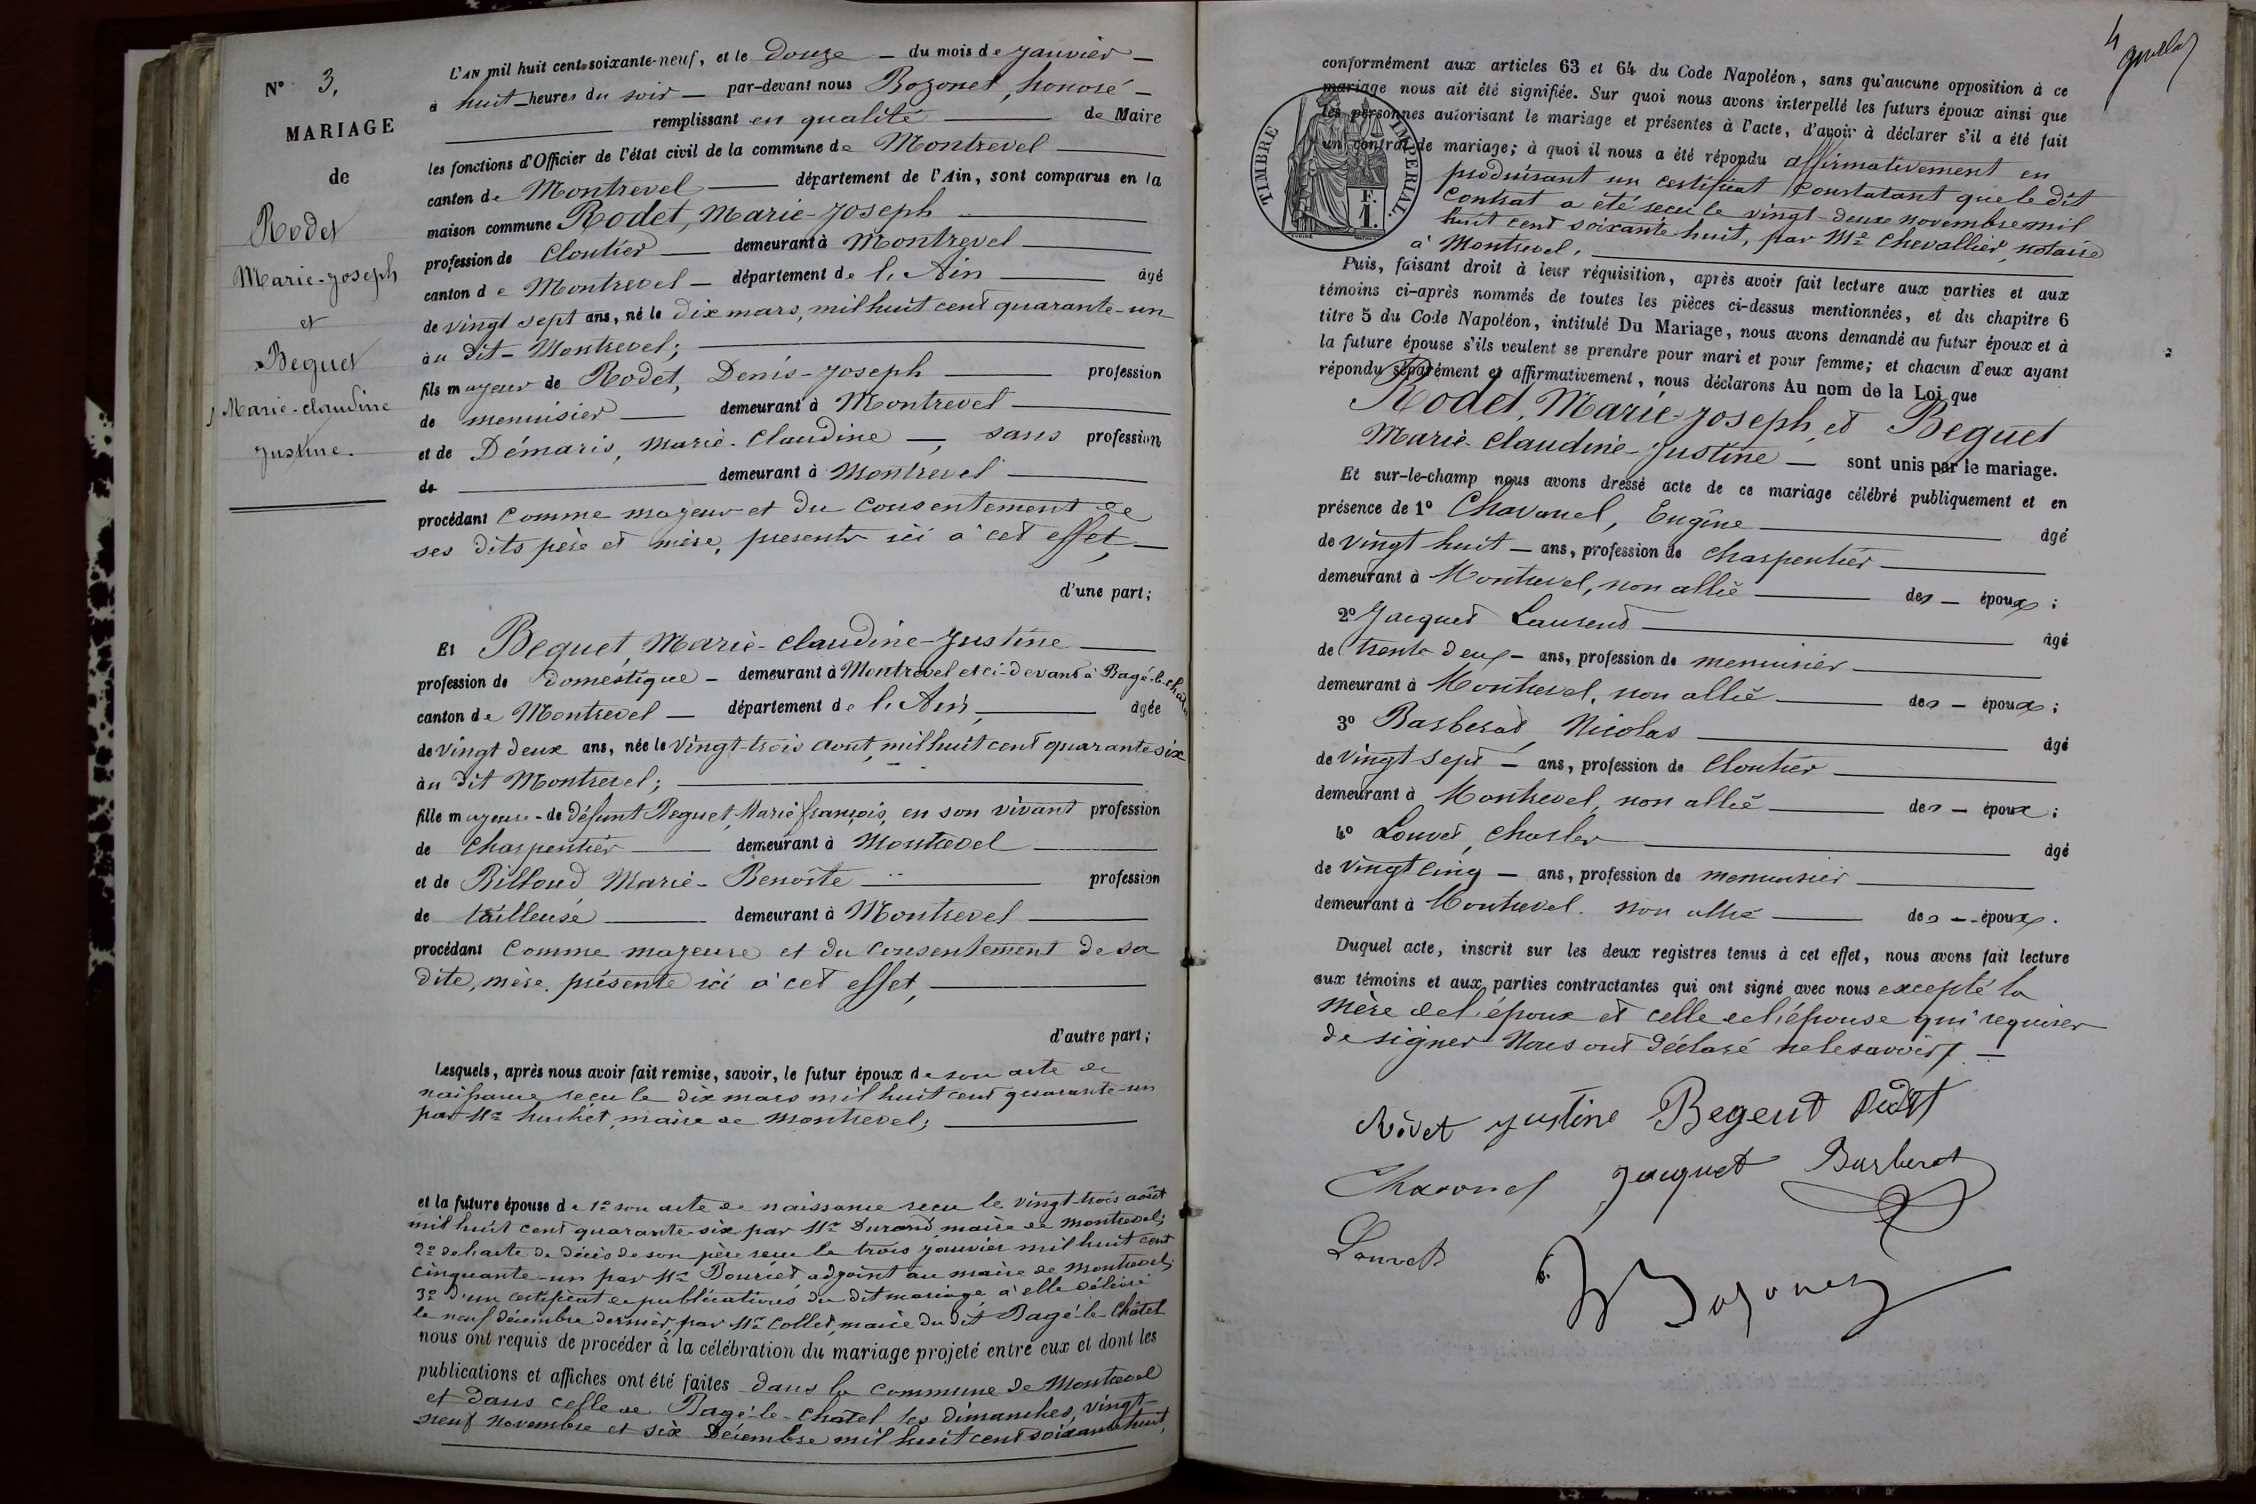 N° 3.
MARIAGE
de
Rodet
Marie-Joseph
et
Beguet
Marie-claudine
Justine.
L'AN mil huit cent soixante-neuf, et le douze du mois de Janvier
à huit heures du soir par-devant nous Bozonet, honoré
remplissant en qualité de Maire
les fonctions d'Officier de l'état civil de la commune de Montrevel
canton de Montrevel département de l'Ain, sont comparus en la
maison commune Rodet, Marie-Joseph
profession de Cloutier demeurant à Montrevel
canton de Montrevel département de l'Ain âgé
de vingt sept ans, né le dix mars, mil huit cent quarante-un
au dit Montrevel;
fils majeur de Rodet, Denis-Joseph profession
de menuisier demeurant à Montrevel
et de Démaris, Marie-Claudine, sans profession
de demeurant à Montrevel
procédant Comme majeur et du Consentement de
ses dits père et mère, presents ici à cet effet,
d'une part;
Et Beguet, Marie-claudine-Justine
profession de domestique demeurant à Montrevel et ci-devant à Bagé-le-châtel
canton de Montrevel département de l'Ain, âgée
de vingt deux ans, née le vingt-trois aout, mil huit cent quarante six
au dit Montrevel;
fille majeure de défunt Beguet, Marie françois, en son vivant profession
de Charpentier demeurant à Montrevel
et de Billoud Marie-Benoîte profession
de tailleuse demeurant à Montrevel
procédant Comme majeure et du Consentement de sa
dite, mère présente ici à cet effet,
d'autre part;
Lesquels, après nous avoir fait remise, savoir, le futur époux de son acte de
naissance reçu le dix mars mil huit cent quarante-un
par Mr huchet, maire de Montrevel;
et la future épouse de 1° son acte de naissance reçu le vingt-trois août
mil huit cent quarante six par Mr Durand, maire de Montrevel;
2° de l'acte de décès de son père reçu le trois janvier mil huit cent
cinquante-un par Mr Bouriet, adjoint au maire de Montrevel;
3° d'un certificat de publications du dit mariage à elle délivré
le neuf décembre dernier, par Mr Collet, maire du dit Bagé-le-Châtel
nous ont requis de procéder à la célébration du mariage projeté entre eux et dont les
publications et affiches ont été faites dans la commune de Montrevel
et dans celle de Bagé-le-Châtel les dimanches, vingt-
neuf novembre et six Décembre mil huit cent soixante huit,
4
conformément aux articles 63 et 64 du Code Napoléon, sans qu'aucune opposition à ce
mariage nous ait été signifiée. Sur quoi nous avons interpellé les futurs époux ainsi que
les personnes autorisant le mariage et présentes à l'acte, d'avoir à déclarer s'il a été fait
un contrat de mariage; à quoi il nous a été répondu affirmativement en
TIMBRE IMPERIAL.
1 F.
produisant un certificat Constatant que le dit
Contrat a été reçu le vingt-deux novembre mil
huit cent soixante huit, par Me Chevallier, notaire
à Montrevel.
Puis, faisant droit à leur réquisition, après avoir fait lecture aux parties et aux
témoins ci-après nommés de toutes les pièces ci-dessus mentionnées, et du chapitre 6
titre 5 du Code Napoléon, intitulé Du Mariage, nous avons demandé au futur époux et à
la future épouse s'ils veulent se prendre pour mari et pour femme; et chacun d'eux ayant
répondu séparément et affirmativement, nous déclarons Au nom de la Loi que
Rodet, Marie-Joseph, et Beguet
Marie-Claudine-Justine sont unis par le mariage.
Et sur-le-champ nous avons dressé acte de ce mariage célébré publiquement et en
présence de 1° Chavanel, Eugîne âgé
de vingt huit ans, profession de Charpentier
demeurant à Montrevel, non allié des époux;
2° Jacquet Laurent âgé
de trente deux ans, profession de menuisier
demeurant à Montrevel, non allié des époux;
3° Barberat, Nicolas âgé
de vingt sept ans, profession de Cloutier
demeurant à Montrevel, non allié des époux;
4° Louvet, Charles âgé
de vingt cinq ans, profession de menuisier
demeurant à Montrevel. non allié des époux.
Duquel acte, inscrit sur les deux registres tenus à cet effet, nous avons fait lecture
aux témoins et aux parties contractantes qui ont signé avec nous excepté la
mère de l'époux et celle de l'épouse qui requises
de signer nous ont déclaré ne le savoir.
Rodet Justine Begeut
Chavanel Jacquet Barberat
Louvet
h Bozonet